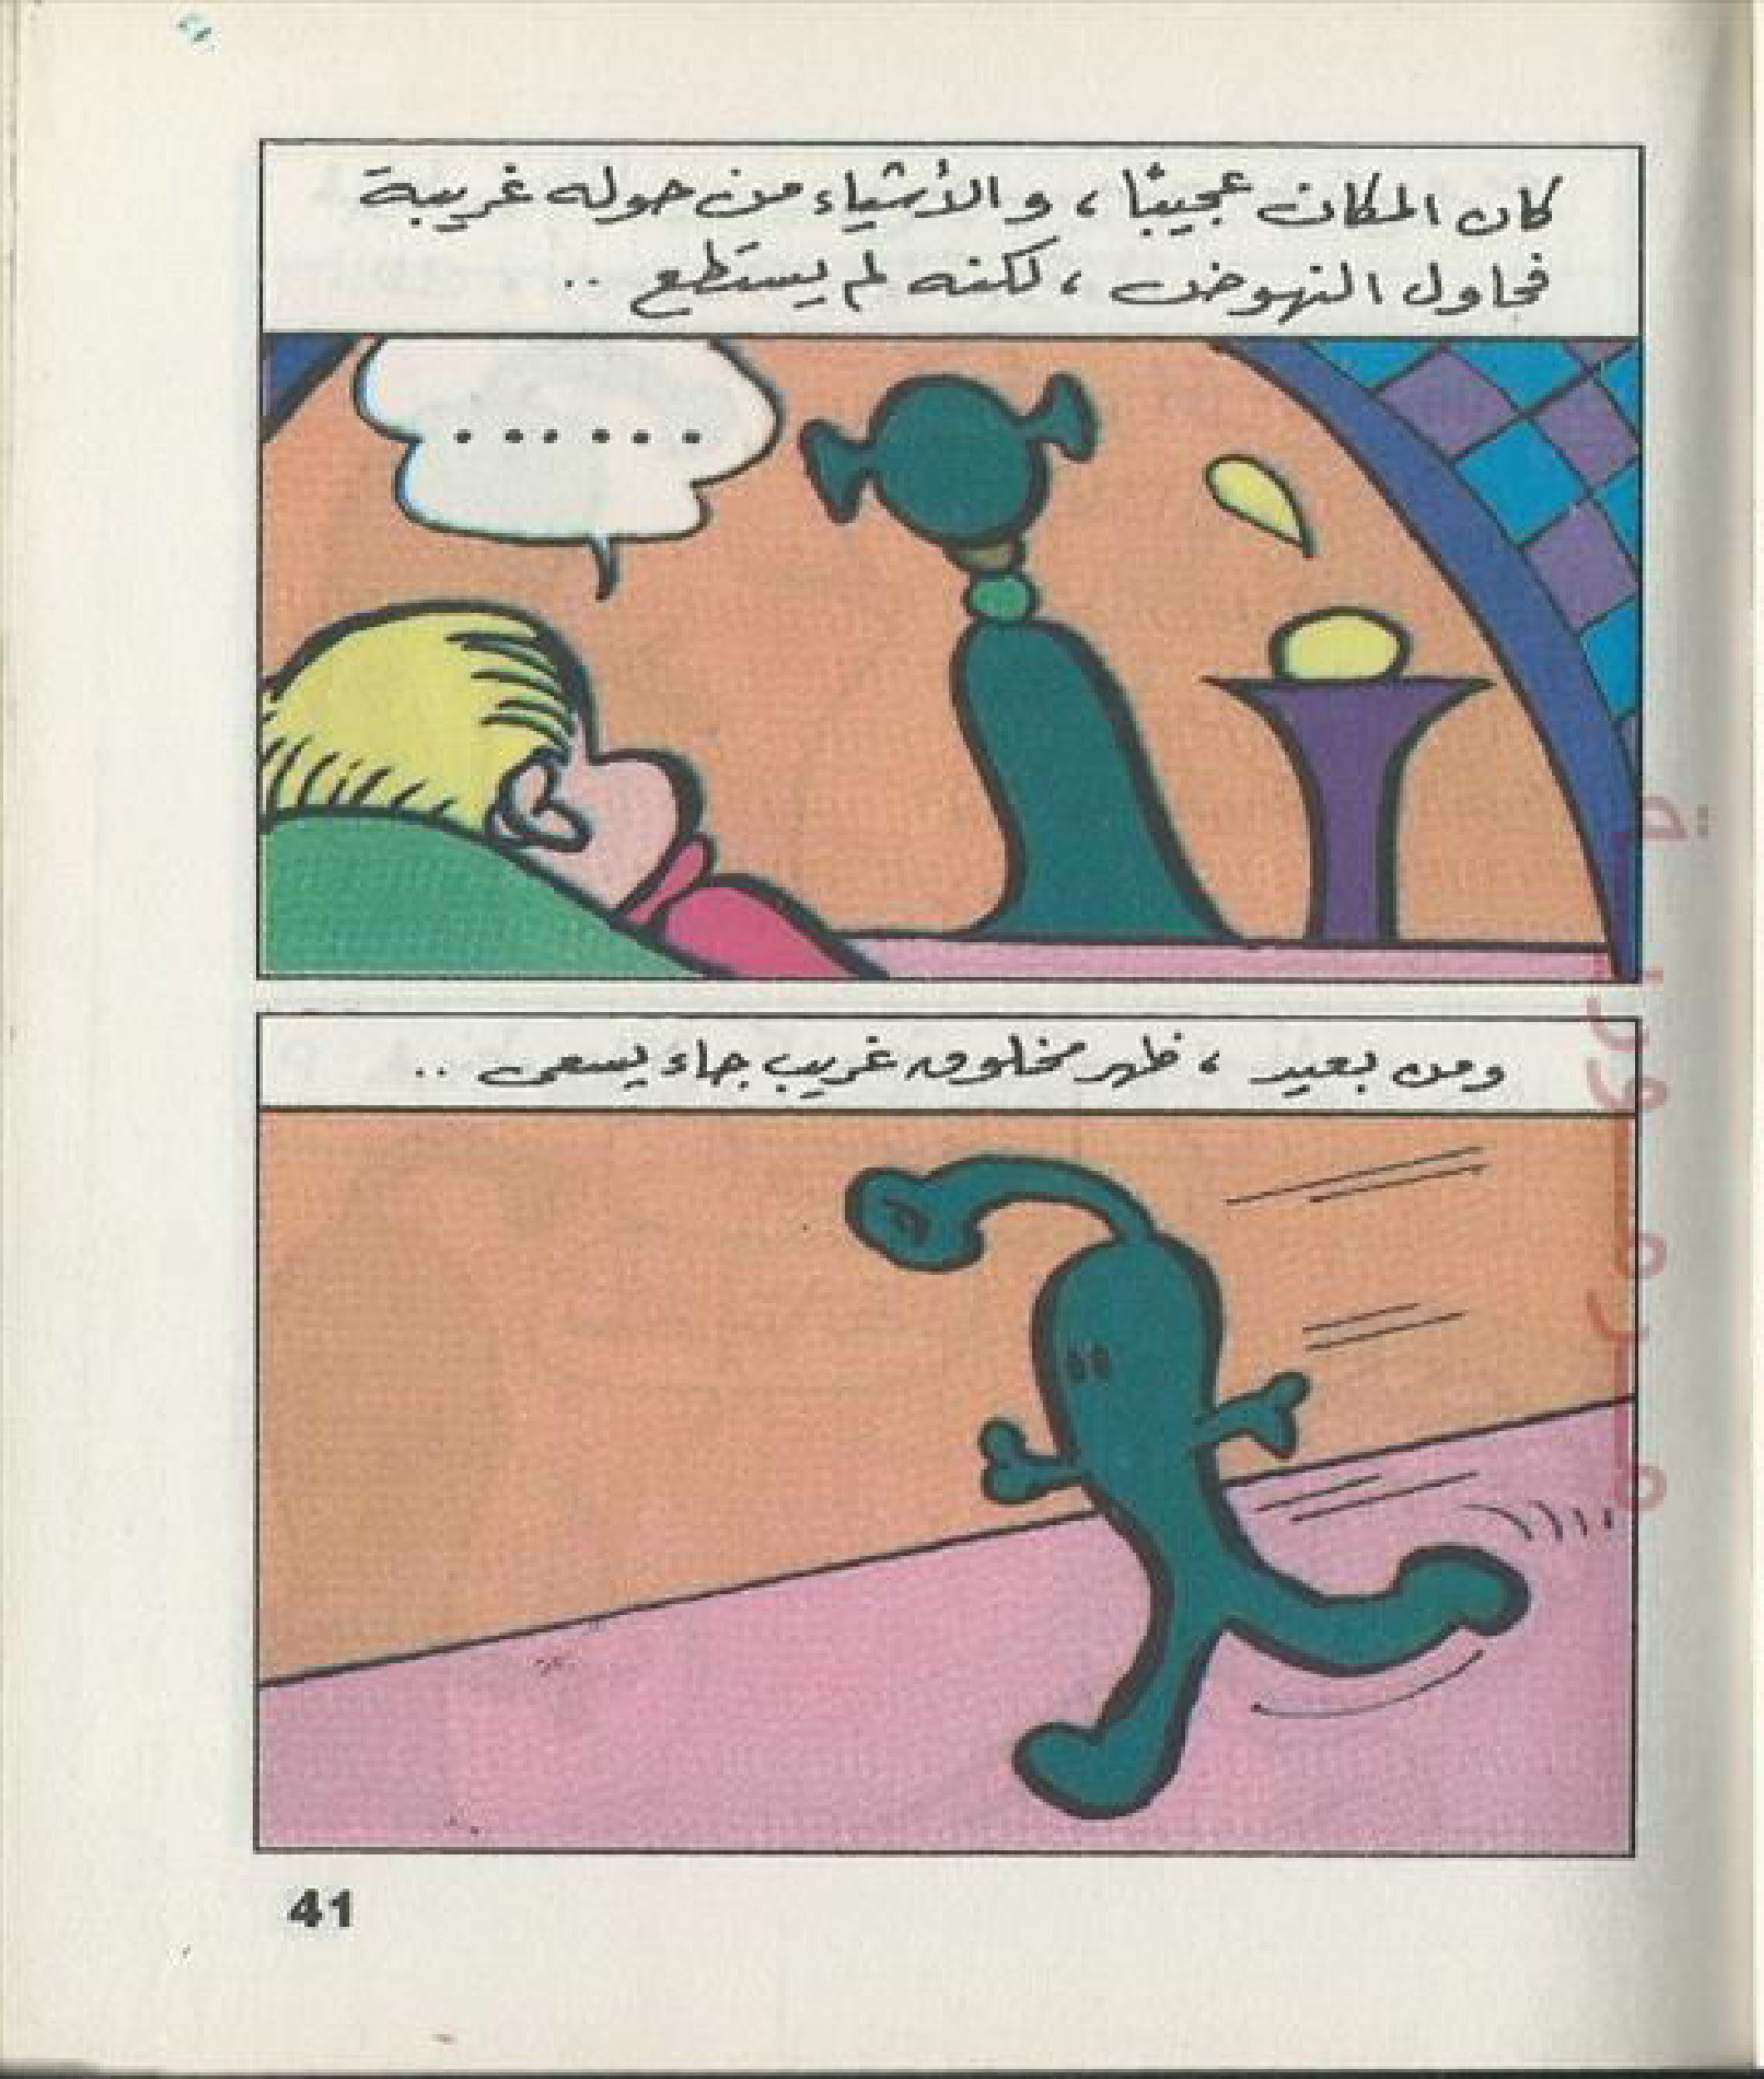 كان المكان عجيبًا ، والأشياء من حوله غريبة
فحاول النهوض ، لكنه لم يستطع ..
......
ومن بعيد ، ظهر مخلوق غريب جاء يسعى ..
41